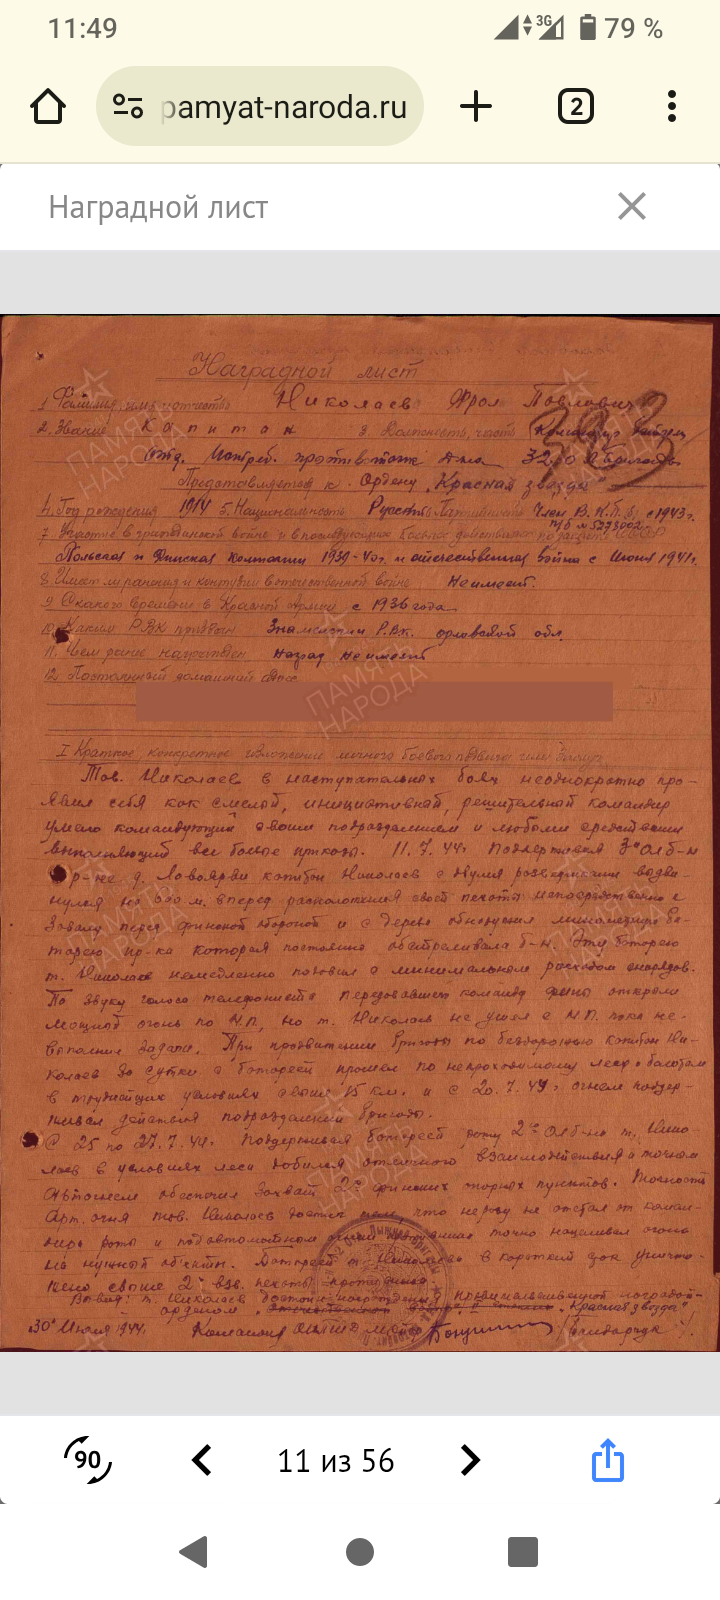 11:49
3G
79 %
pamyat-naroda.ru
2
Наградной лист
Наградной лист
1. Фамилия, имя, отчество Николаев Фрол Павлович
2. Звание Капитан 3. Должность, часть Командир батареи
Отд. противотанк. див 32
Представляется к Ордену "Красная звезда"
4. Год рождения 1914 5. Национальность Русский Член В.К.П.(б) с 1943 г.
7. Участие в гражданской войне и последующих боевых действиях по защите СССР
Польская и Финская 1939-40 г. и отечественная война с Июня 1941 г.
8. Имеет ли ранения и контузии в отечественной войне Не имеет.
9. С какого времени в Красной Армии с 1936 года
10. Каким РВК призван Знаменский Р.В.К. орловской обл.
11. Чем ранее награжден Наград не имеет
12. Постоянный домашний адрес
I Краткое, конкретное изложение личного боевого подвига или заслуг
Тов. Николаев в наступательных боях неоднократно про-
явил себя как смелый, инициативный, решительный командир
умело командующий своим подразделением и любыми средствами
выполняющий все боевые приказы. 11.7.44г. Поддерживая 3й ОЛБ-н
р-не д. Лавоярви капитан Николаев с двумя разведчиками выдви-
нулся на м. вперед расположения своей пехоты непосредственно к
завалу перед финской обороной и с дерева обнаружил минометную ба-
тарею пр-ка которая постоянно обстреливала б-н. Эту батарею
т. Николаев немедленно подавил с минимальным расходом снарядов.
По звуку голоса телефониста передававшего команду финны открыли
мощный огонь по Н.П, но т. Николаев не ушел с Н.П. пока не
выполнил задачи. При продвижении бригады по бездорожью капитан Ни-
колаев за сутки с батареей прошел по непроходимому лесу и болотам
в труднейших условиях свыше 15 км. и с 20.7.44г. огнем поддер-
живал действия подразделений бригады.
С 25 по 27.7.44г. Поддерживая батареей роту 2го ОЛБ-на т. Нико-
лаев в условиях леса добился отличного взаимодействия и точным
обеспечил захват 2х финских опорных пунктов. Точность
арт. огня тов. Николаев достиг тем, что не разу не отстал от коман-
дира роты и под автоматным огнем противника точно нацеливал огонь
на нужный объекты. Батарея т. Николаева в короткий срок уничто-
жено свыше 2х взв. пехоты противника.
Вывод: т. Николаев достоин награждения правительственной наградой-
орденом "Отечественной война II степени" "Красная звезда"
30 Июля 1944г. Командир майор /Бондарчук/.
ПАМЯТЬ НАРОДА
90
11 из 56